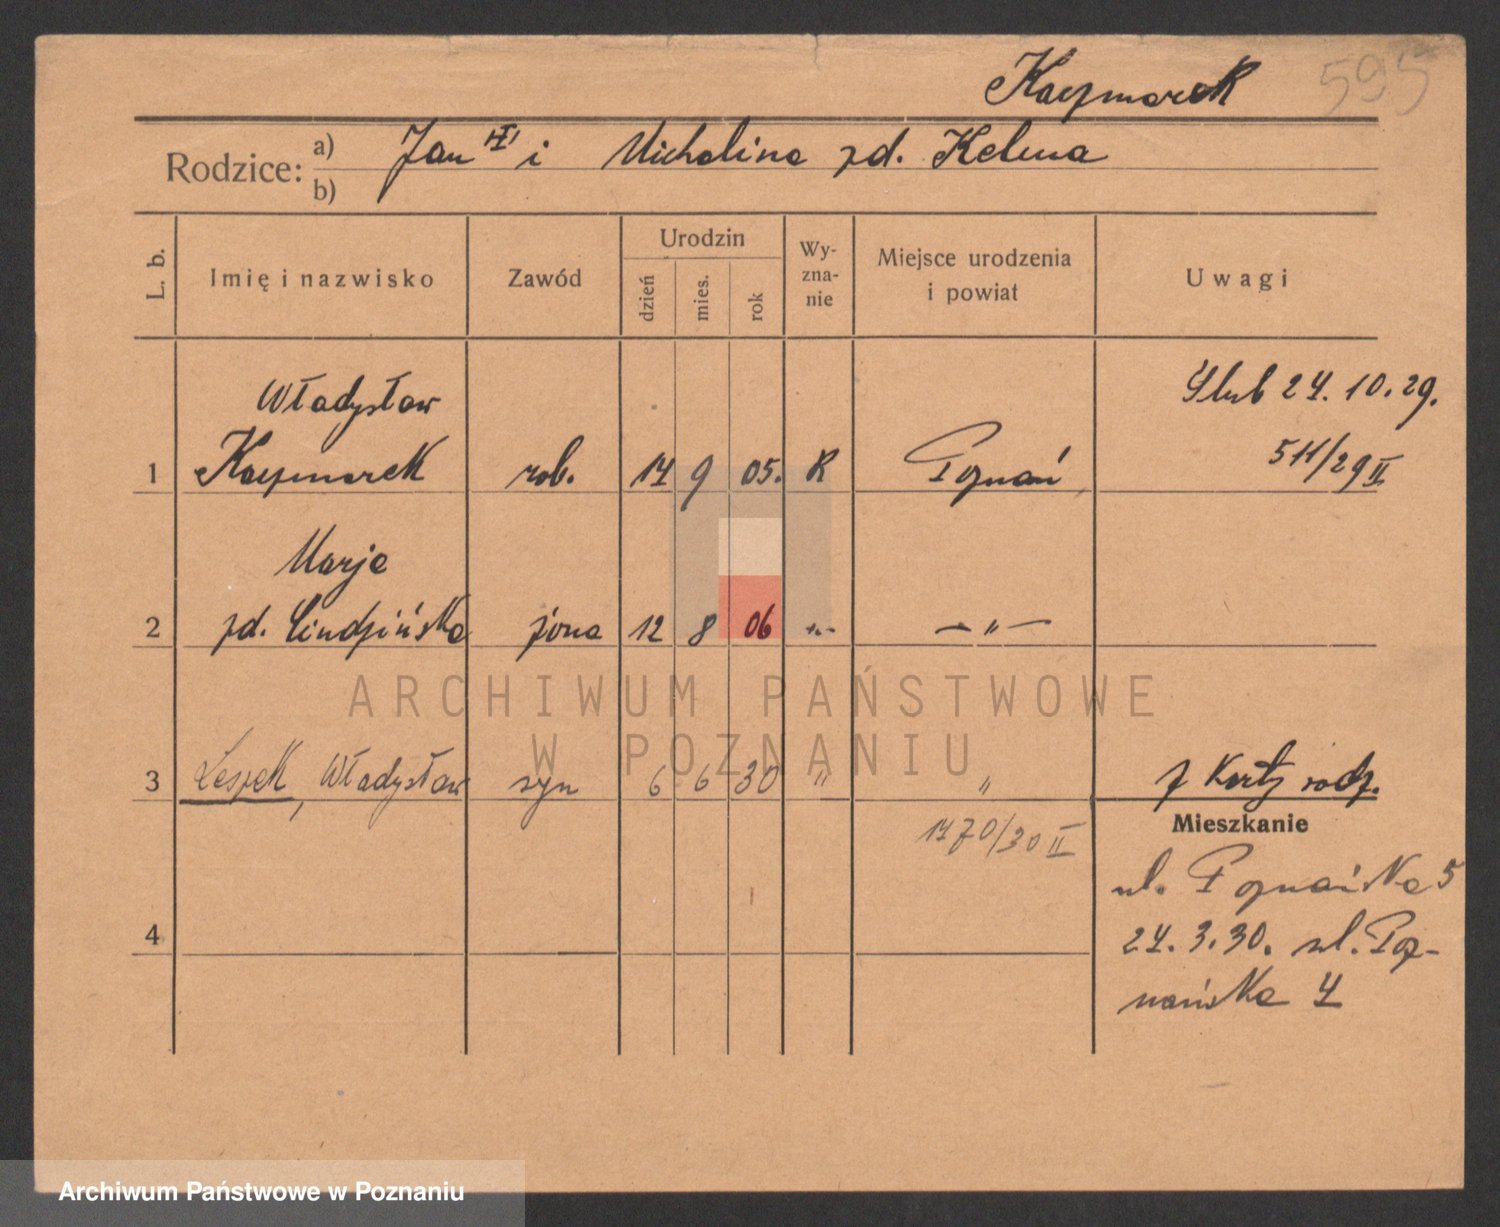 Kaczmarek 595
Rodzice: a) Jan III i Michalina zd. Kelma
b)
L. b.
Imię i nazwisko
Zawód
Urodzin
dzień
mies.
rok
Wy-
zna-
nie
Miejsce urodzenia
i powiat
Uwagi
Władysław Ślub 24. 10. 29.
1 Kaczmarek rob. 14 9 05. R Poznań 511/29 II
Marja
2 zd. żona 12 8 06 -„- —„—
3 Leszek, Władysław syn 6 6 30 „ „ z Karty rodz.
Mieszkanie
1470/30 II
ul. Poznańska 5
4 24. 3. 30. ul. Poz-
nańska 4
ARCHIWUM PAŃSTWOWE
W POZNANIU
Archiwum Państwowe w Poznaniu